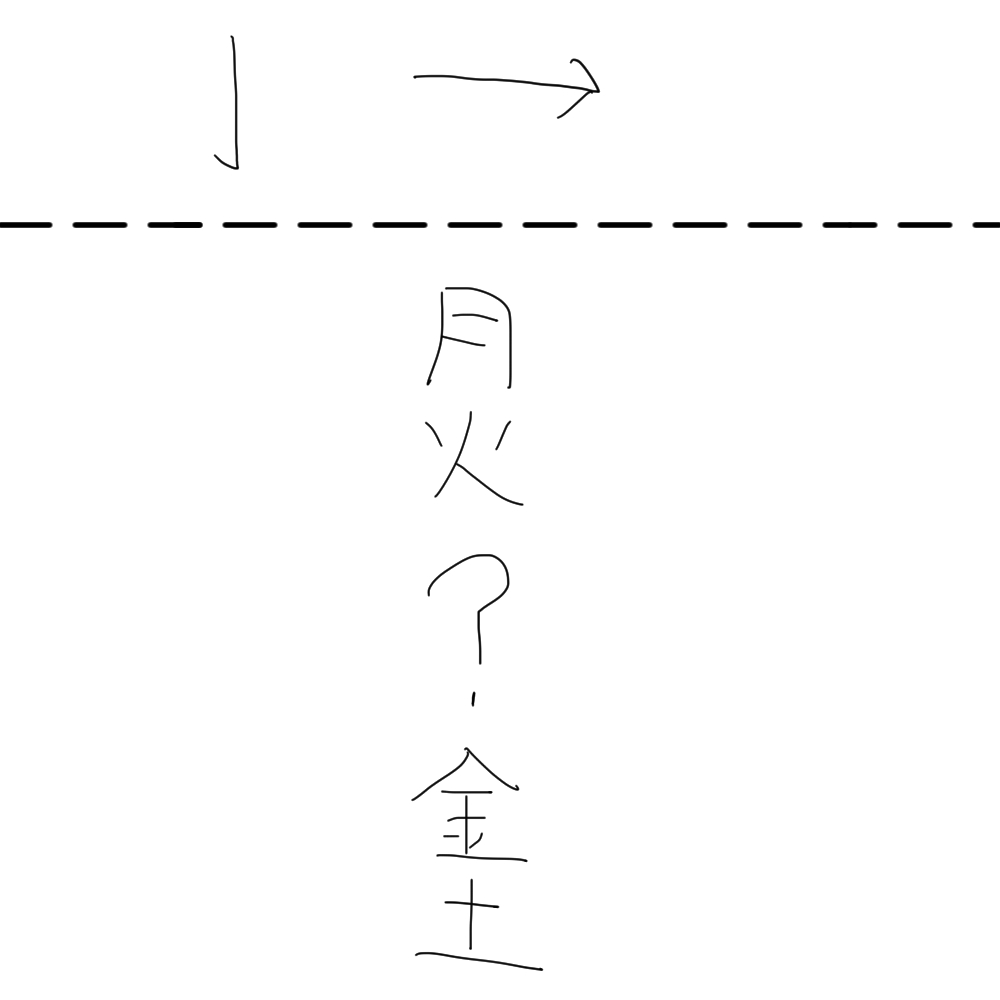 亅 →
月
火
?
金
土